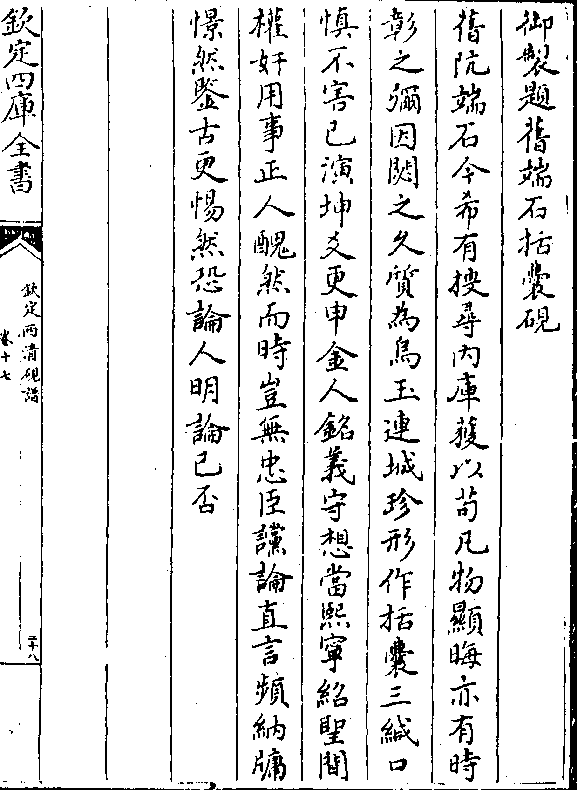 御製題舊端石括囊硯
舊阬端石今希有搜尋内庫獲以苟凡物顯晦亦有時
彰之彌因閟之久質為烏玉連城珍形作括囊三緘口
慎不害已演坤爻更申金人銘義守想當熙寧紹聖間
權奸用事正人醜然而時豈無忠臣讜論直言頻納牖
憬然鑒古更惕然恐論人明論已否
欽定四庫全書
欽定西清硯譜
卷十七
二十八